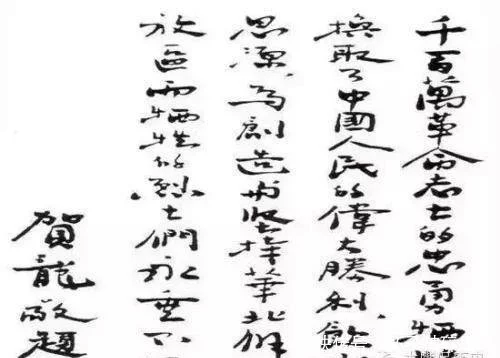 千百萬革命志士的忠勇牺
换取了中國人民的偉大勝利,飲
思源,為創造与坚持華北解
放區而牺牲的烈士們永垂不
賀龍敬題